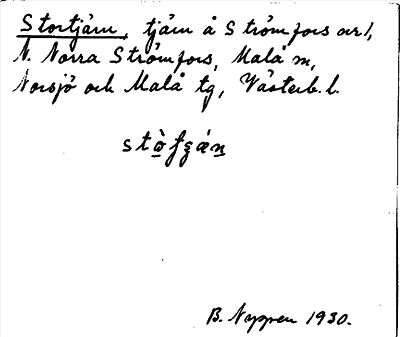 Stortjärn, tjärn å Strömfors ar1,
N. Norra Strömfors, Malå sn,
Norsjö och Malå tg, Västerb. l.
B. Nyppen 1930.